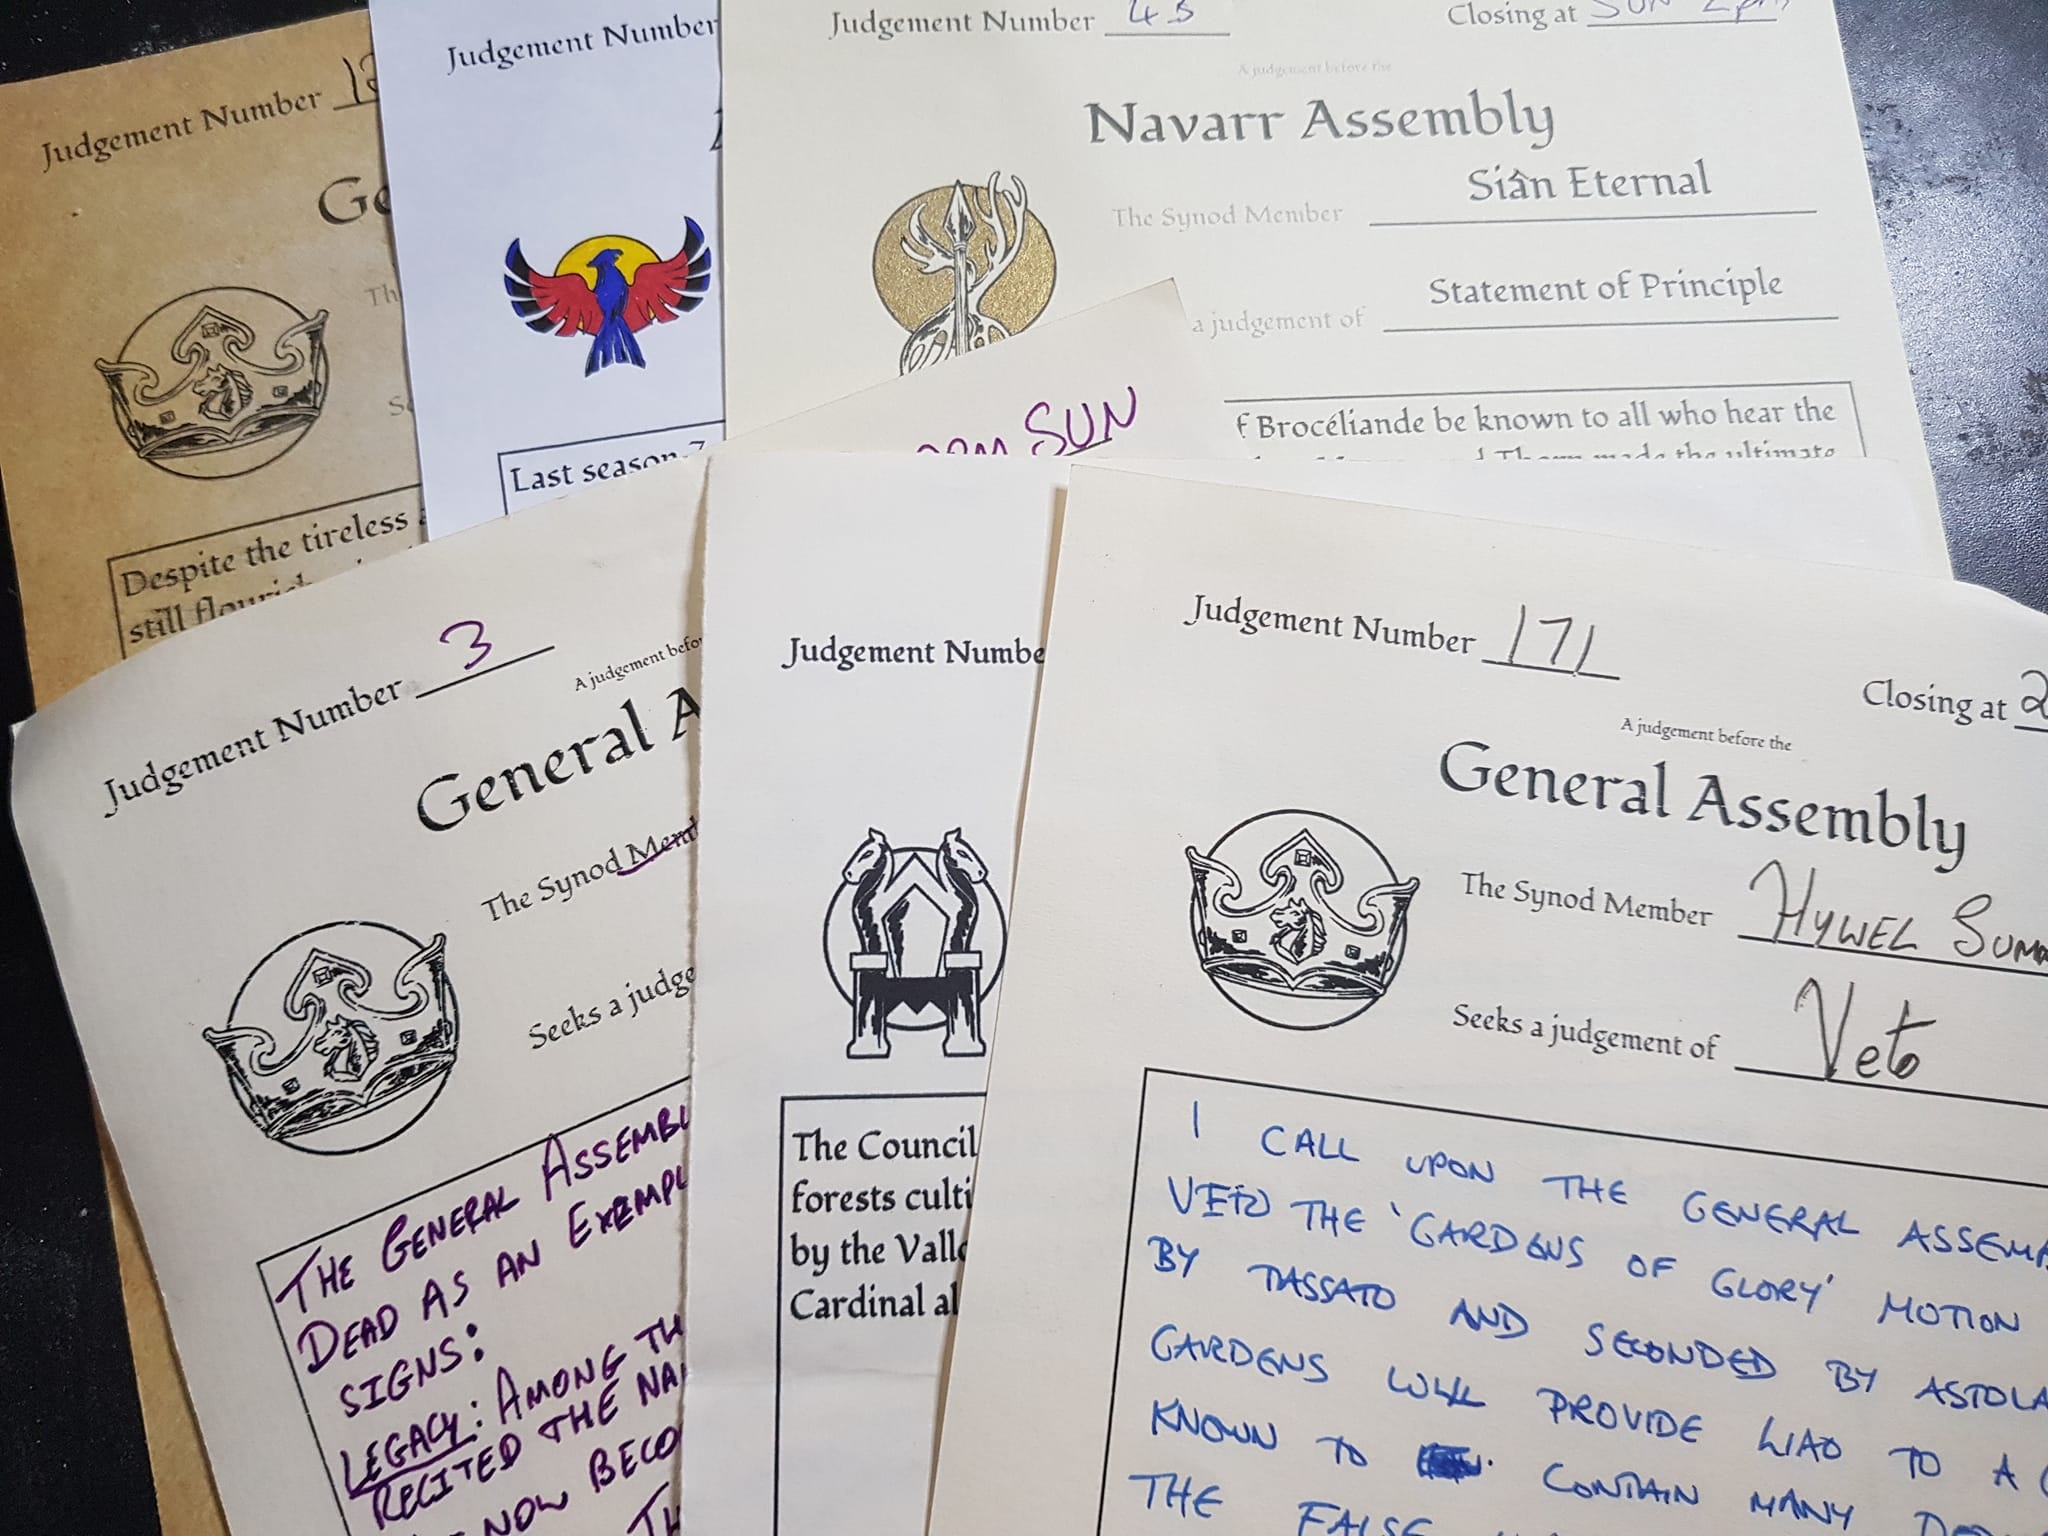 Judgement Number
Ge
Despite the tireless
still
Judgement Number
Last season
Judgement Number 45
Closing at SUN 2pm
A judgement before the
Navarr Assembly
The Synod Member Siân Eternal
a judgement of Statement of Principle
f Brocéliande be known to all who hear the
made the ultimate
SUN
Judgement Number 3
A judgement befo
General A
The Synod
Seeks a judge
THE GENERAL ASSEMBL
DEAD AS AN EXEMPL
SIGNS:
LEGACY: AMONG TH
RECITED THE NA
NOW BECO
TH
Judgement Numbe
The Council
forests culti
by the Vall
Cardinal al
Judgement Number 171
Closing at 2
A judgement before the
General Assembly
The Synod Member HYWEL SUM
Seeks a judgement of Veto
I CALL UPON THE GENERAL ASSEM
VETO THE 'GARDENS OF GLORY' MOTION
BY TASSATO AND SECONDED BY ASTOLA
GARDENS WILL PROVIDE LIAO TO A
KNOWN TO CONTAIN MANY
THE FALSE